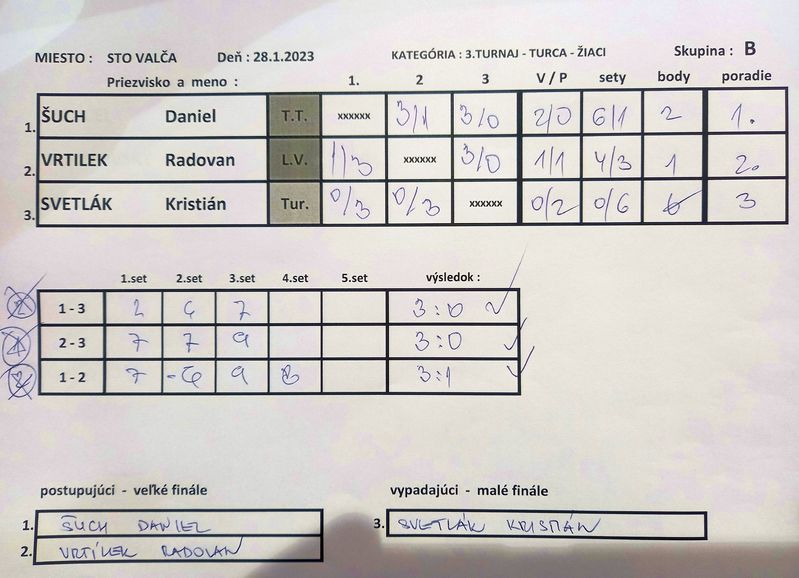 MIESTO : STO VALČA Deň : 28.1.2023 KATEGÓRIA : 3.TURNAJ - TURCA - ŽIACI Skupina : B
Priezvisko a meno : 1. 2 3 V / P sety body poradie
1. ŠUCH Daniel T.T. xxxxxx 3/1 3/0 2/0 6/1 2 1.
2. VRTILEK Radovan L.V. 1/3 xxxxxx 3/0 1/1 4/3 1 2.
3. SVETLÁK Kristián Tur. 0/3 0/3 xxxxxx 0/2 0/6 3
1.set 2.set 3.set 4.set 5.set výsledok :
1 - 3 2 6 7 3:0
2 - 3 7 7 9 3:0
1 - 2 7 -6 9 8 3:1
postupujúci - veľké finále vypadajúci - malé finále
1. ŠUCH DANIEL 3. SVETLÁK KRISTIÁN
2. VRTÍLEK RADOVAN